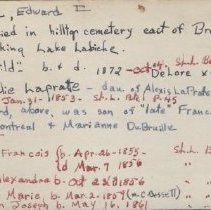 , Edward E
ied in hilltop cemetery east of Br
king Lake Labiche.
ild" b. & d. 1872
DeLore x
lie Laprate - dau. of Alexis LaPrate
Jan. 31 - 1853 - St. L. Bk 1 P-45
d, above, was son of "late" Franc
ontreal & Marianne DuBruille
Francois (b. Apr. 26-1855- St. L. B
(d Mar. 7 1856 "
lexandre b. Oct 1856 "
Marie, b. Mar. 2-1859 (m. C Bassett)
n Joseph b. May 16, 1861